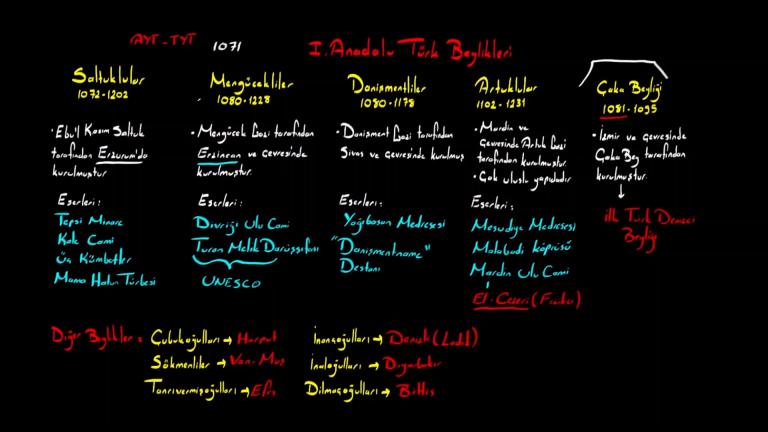 AYT-TYT
1071
I. Anadolu Türk Beylikleri
Saltuklular
1072-1202
• Ebu'l Kasım Saltuk
tarafından Erzurum'da
kurulmuştur
Eserleri:
Tepsi Minare
Kale Cami
Üç Kümbetler
Mama Hatun Türbesi
Mengücekliler
1080-1228
• Mengücek Gazi tarafından
Erzincan ve çevresinde
kurulmuştur.
Eserleri:
Divriği Ulu Cami
Turan Melik Darüşşifası
UNESCO
Danişmentliler
1080-1178
• Danişment Gazi tarafından
Sivas ve çevresinde kurulmuş
Eserleri:
Yağıbasan Medresesi
"Danişmentname"
Destanı
Artuklular
1102-1231
• Mardin ve
Çevresinde Artuk Gazi
tarafından kurulmuştur.
• Çok uluslu yapıdadır
Eserleri:
Mesudiye Medresesi
Malabadi köprüsü
Mardin Ulu Cami
El-Cezeri
Çaka Beyliği
1081-1095
• İzmir ve çevresinde
Çaka Bey tarafından
kurulmuştur.
ilk Türk Denizci
Beyliği
Diğer Beylikler:
Çubukoğulları → Harput
Sökmenliler → Van-Muş
Tanrıvermişoğulları → Efes
İnançoğulları → Denizli (Ladik)
İnaloğulları → Diyarbakır
Dilmaçoğulları → Bitlis